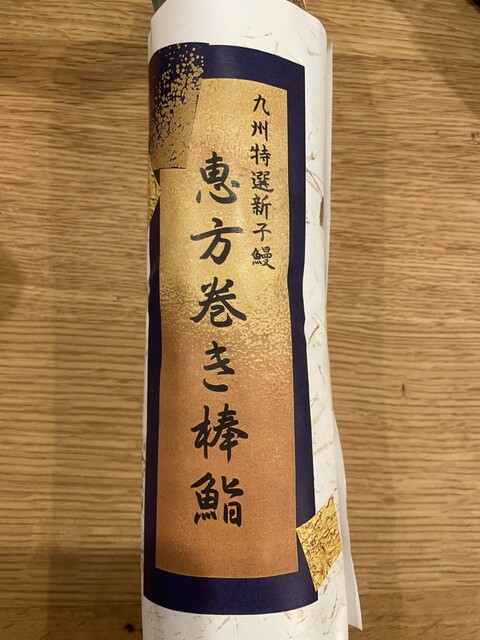 九州特選新子鰻
恵方巻き棒鮨